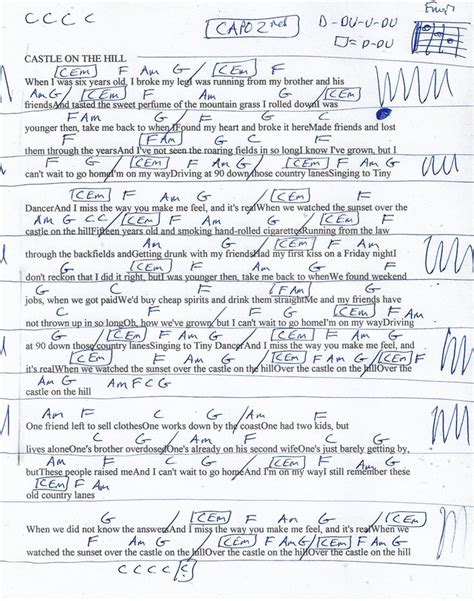 C C C C
CAPO 2nd
D-DU-U-DU
□=D-DU
CASTLE ON THE HILL
[CEm] F Am G / [CEm] F
When I was six years old, I broke my legI was running from my brother and his
Am G / [CEm] F Am G
friendsAnd tasted the sweet perfume of the mountain grass I rolled downI was
F Am G C F
younger then, take me back to when IFound my heart and broke it hereMade friends and lost
[F Am] G C
them through the yearsAnd I've not seen the roaring fields in so longI know I've grown, but I
F G / [CEm] F Am G / [CEm]
can't wait to go homeI'm on my wayDriving at 90 down those country lanesSinging to Tiny
F Am G [CEm] F Am G / [CEm] F
DancerAnd I miss the way you make me feel, and it's realWhen we watched the sunset over the
Am G C C / [CEm] F Am G / [CEm] F
castle on the hillFifteen years old and smoking hand-rolled cigarettesRunning from the law
Am G Am F
through the backfields andGetting drunk with my friendsHad my first kiss on a Friday nightI
G C F Am
don't reckon that I did it right, butI was younger then, take me back to whenWe found weekend
G C F [F Am] G
jobs, when we got paidWe'd buy cheap spirits and drink them straightMe and my friends have
C F G / [CEm] F
not thrown up in so longOh, how we've grown, but I can't wait to go homeI'm on my wayDriving
Am G / [CEm] F Am G / [CEm] F Am G
at 90 down those country lanesSinging to Tiny DancerAnd I miss the way you make me feel, and
/ [CEm] F Am G / [CEm] F Am G / [CEm] F
it's realWhen we watched the sunset over the castle on the hillOver the castle on the hillOver the
Am G Am F C G
castle on the hill
Am F C G / Am F
One friend left to sell clothesOne works down by the coastOne had two kids, but
C G Am F C G
lives aloneOne's brother overdosedOne's already on his second wifeOne's just barely getting by,
Am F C G [CEm] F Am G
butThese people raised meAnd I can't wait to go homeAnd I'm on my wayI still remember these
[CEm] F Am
old country lanes
G / [CEm] F Am G / [CEm]
When we did not know the answersAnd I miss the way you make me feel, and it's realWhen we
F Am G / [CEm] F Am G / [CEm] F Am G
watched the sunset over the castle on the hillOver the castle on the hillOver the castle on the hill
C C C C [C]